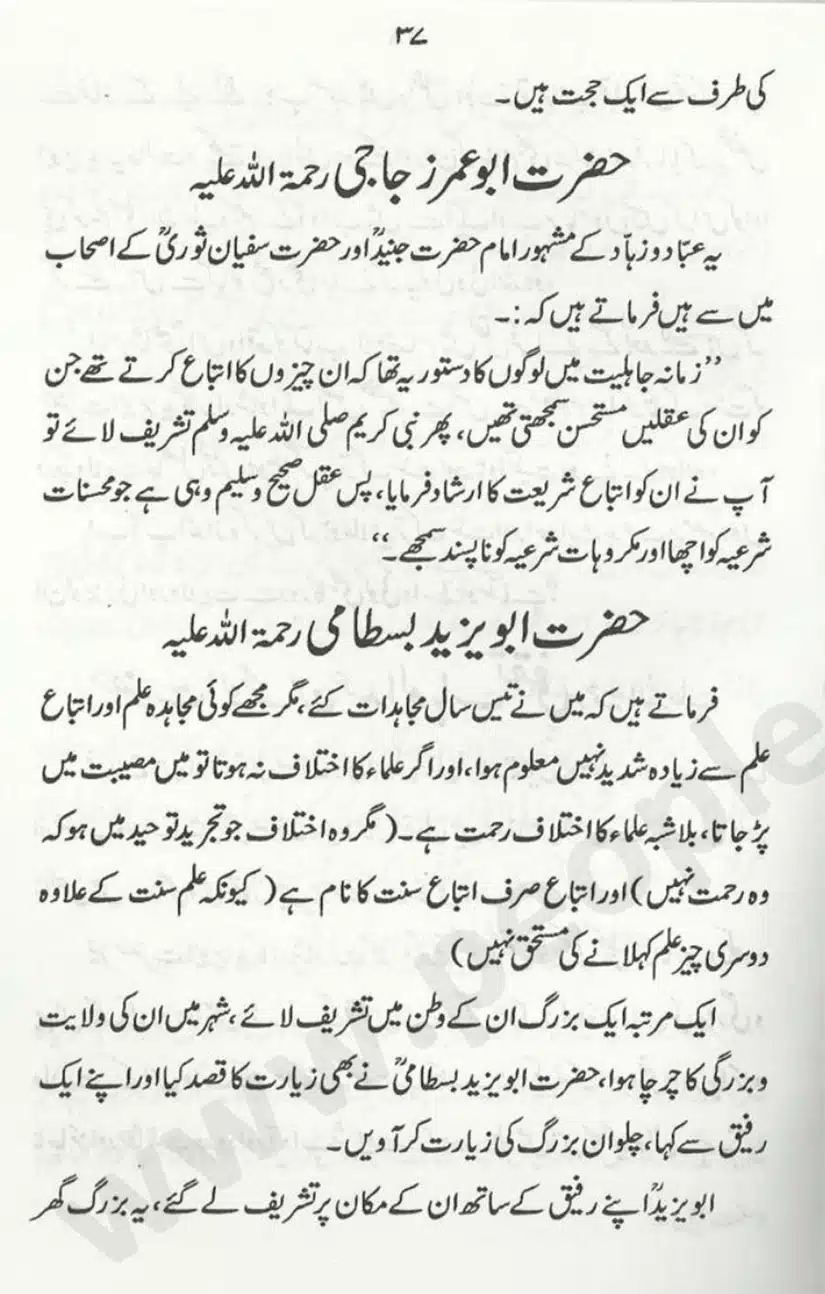 ۳۷
کی طرف سے ایک حجت ہیں۔
حضرت ابو عمر زجاجی رحمۃ اللہ علیہ
یہ عبّاد و زہاّد کے مشہور امام حضرت جنیدؒ اور حضرت سفیان ثوریؒ کے اصحاب
میں سے ہیں فرماتے ہیں کہ:۔
’’زمانہ جاہلیت میں لوگوں کا دستور یہ تھا کہ ان چیزوں کا اتباع کرتے تھے جن
کو ان کی عقلیں مستحسن سمجھتی تھیں، پھر نبی کریم صلی اللہ علیہ وسلم تشریف لائے تو
آپ نے ان کو اتباع شریعت کا ارشاد فرمایا، پس عقل صحیح و سلیم وہی ہے جو محسنات
شرعیہ کو اچھا اور مکروہات شرعیہ کو ناپسند سمجھے۔‘‘
حضرت ابو یزید بسطامی رحمۃ اللہ علیہ
فرماتے ہیں کہ میں نے تیس سال مجاہدات کئے، مگر مجھے کوئی مجاہدہ علم اور اتباع
علم سے زیادہ شدید نہیں معلوم ہوا، اور اگر علماء کا اختلاف نہ ہوتا تو میں مصیبت میں
پڑ جاتا، بلاشبہ علماء کا اختلاف رحمت ہے۔ (مگر وہ اختلاف جو تجرید توحید میں ہو کہ
وہ رحمت نہیں) اور اتباع صرف اتباع سنت کا نام ہے (کیونکہ علم سنت کے علاوہ
دوسری چیز علم کہلانے کی مستحق نہیں)
ایک مرتبہ ایک بزرگ ان کے وطن میں تشریف لائے، شہر میں ان کی ولایت
و بزرگی کا چرچا ہوا، حضرت ابو یزید بسطامیؒ نے بھی زیارت کا قصد کیا اور اپنے ایک
رفیق سے کہا، چلو ان بزرگ کی زیارت کر آویں۔
ابو یزیدؒ اپنے رفیق کے ساتھ ان کے مکان پر تشریف لے گئے، یہ بزرگ گھر
www.people